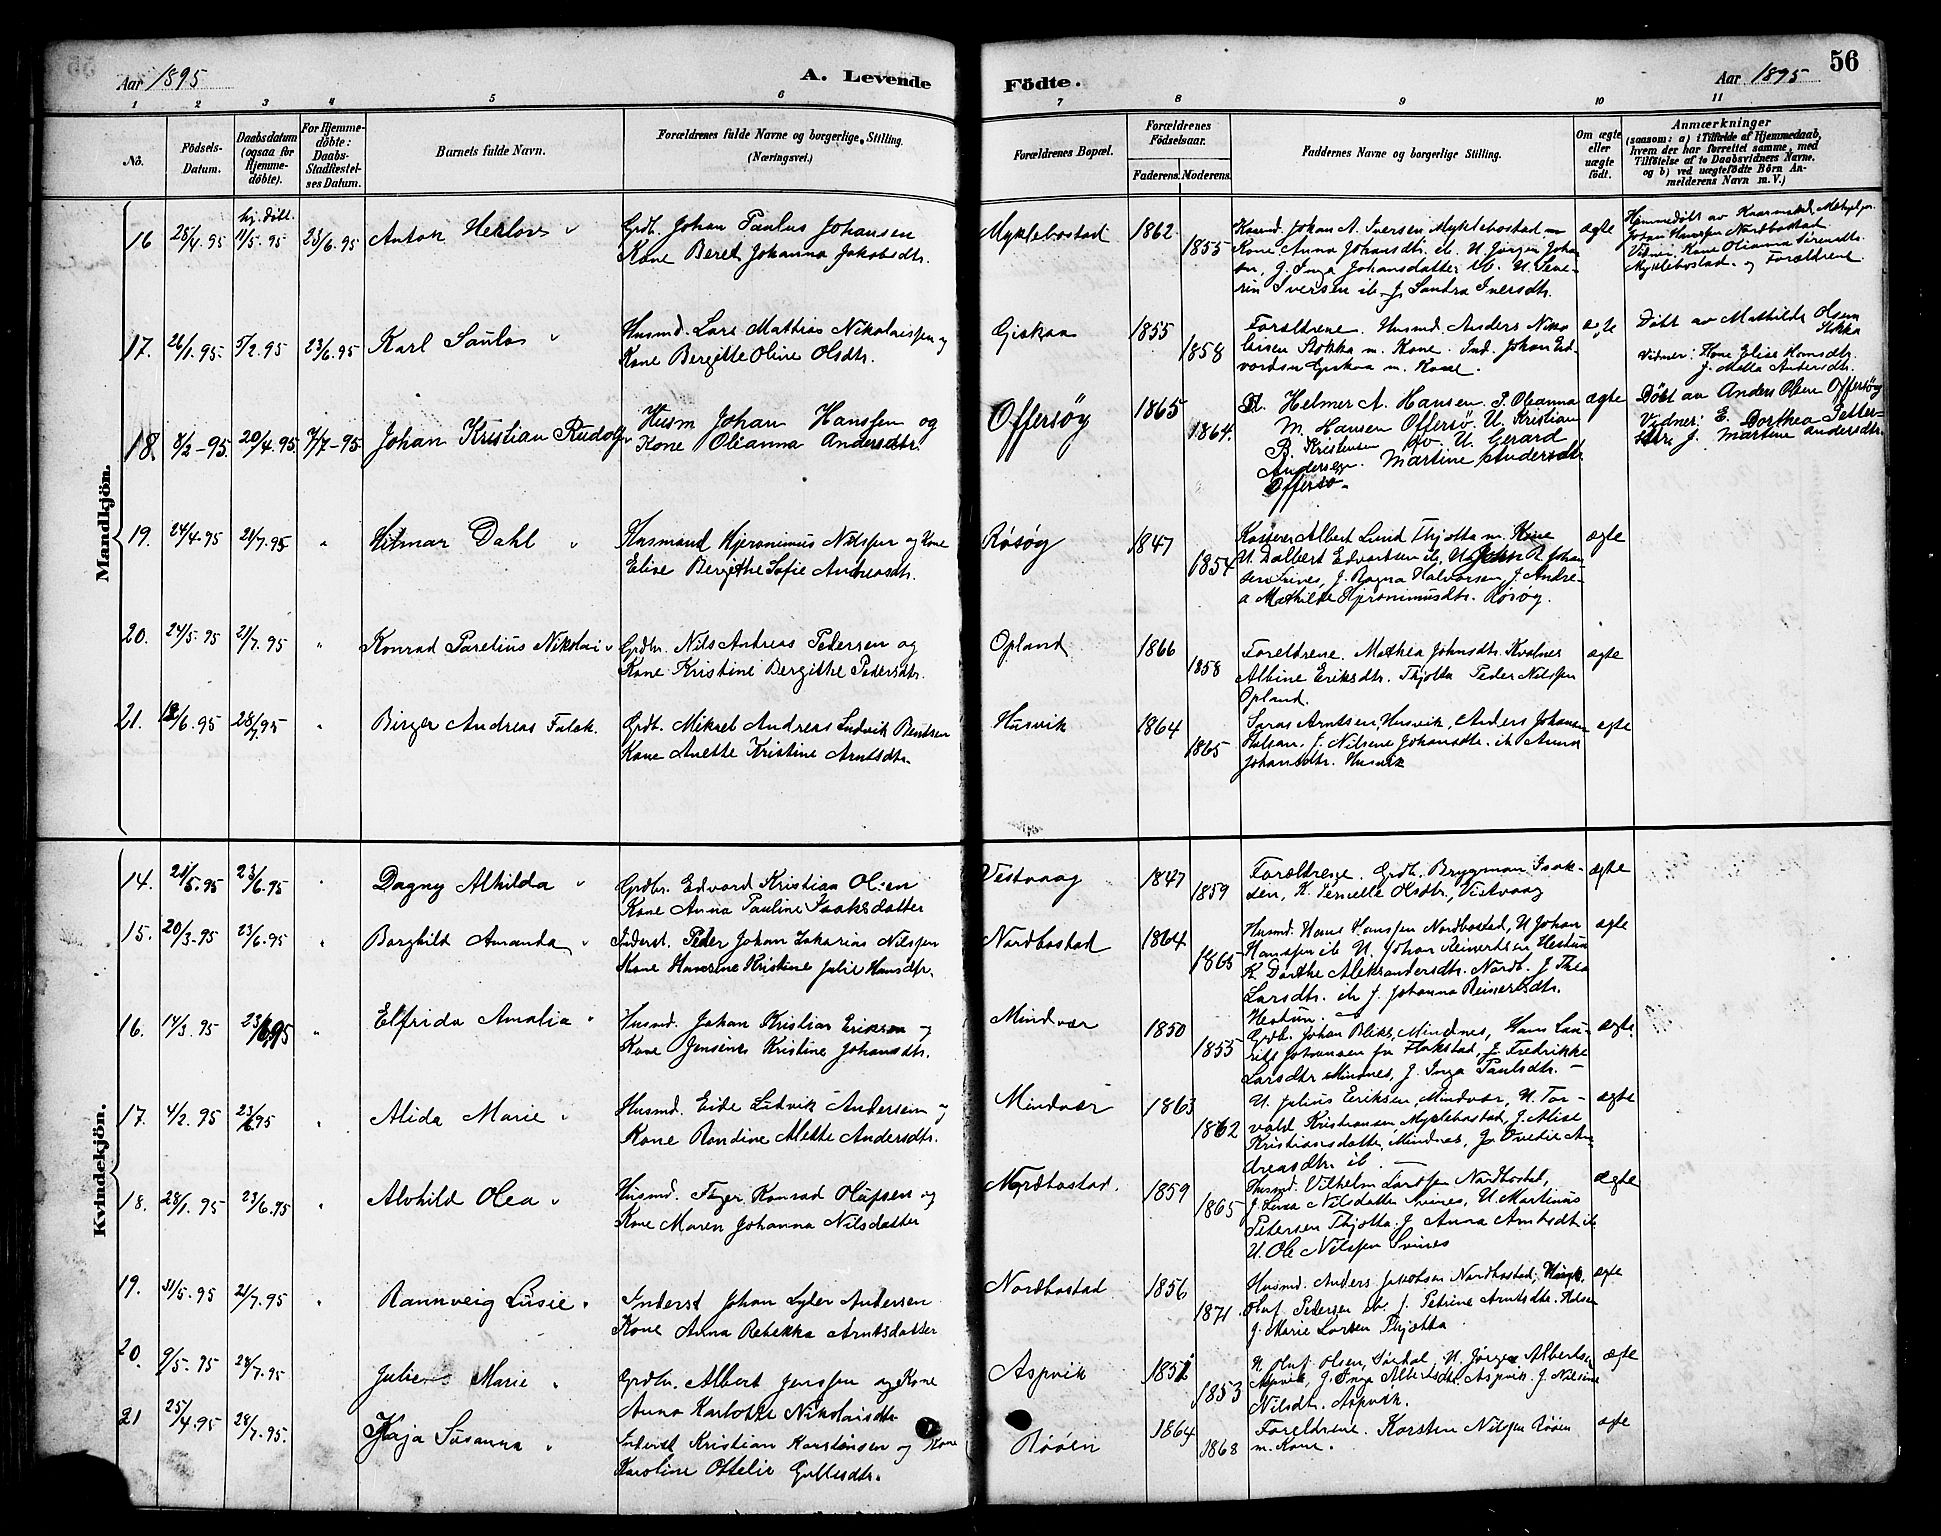 Aar 1895
A. Levende
Födte.
Aar 1895
56
1 2 3 4 5 6 7 8 9 10 11
No.
Födsels-
Datum.
Daabsdatum
(ogsaa for
Hjemme-
döbte).
For Hjemme-
döbte:
Daabs-
Stadfæstel-
ses Datum.
Barnets fulde Navn.
Forældrenes fulde Navne og borgerlige Stilling.
(Næringsvei.)
Forældrenes Bopæl.
Forældrenes
Födselsaar.
Faderens. Moderens.
Faddernes Navne og borgerlige Stilling.
Om ægte
eller
uægte
födt.
Anmærkninger
(saasom: a) i Tilfælde af Hjemmedaab,
hvem der har forrettet samme, med
Tilföielse af to Daabsvidners Navne.
og b) ved uægtefödte Börn An-
melderens Navn m. V.)
Mandkjön.
16 25/4 95 hj. döbt. 11/5. 95 23/6. 95 Anton
Grdb. Johan Paulus Johansen
Kone Beret Johanna Jakobsdtr.
Myklebostad 1862 1855
Johan A. Iversen Myklebostad
Kone Anna Johansdtr. ib. U. Jörgen Johan
J. Inga Johansdatter ib. U. Seve-
rin Iversen ib. J. Sandra Iversdtr.
ægte
Johan Hanssen Nordbostad
Vidner: Kone Olianna Sörensdtr.
Myklebostad og Forældrene.
17. 26/1. 95. 5/2. 95 23/6. 95 Karl
Husmd. Lars Mathias Nikolaissen og
Kone Bergitte Oline Olsdtr.
Giskaa 1855 1858
Forældrene. Husmd. Anders Niko
laisen Stokka m. Kone. Ind. Johan Ed-
vardsen Giskaa m. Kone.
ægte
Döbt av Mathilde Olsen
Stokka
Vidner: Kone Elise Hansdtr.
J. Matta Andersdtr.
18. 8/2 - 95. 20/4. 95. 7/7 - 95 Johan Kristian Rudolf
Husm Johan Hanssen og
Kone Olianna Andersdtr.
Offersöy 1865 1864.
Helmer A. Hansen P. Oleanna
M. Hansen Offersö. U. Kristian
B. Kristensen U. Gerard
Andersen. Martine Andersdtr
Offersö.
ægte
Döbt av Anders Olsen Offersöy
Vidner: E. Dorthea Petter-
sdtr. J. Martine Andersdtr.
19. 24/4. 95 21/7. 95 " Hilmar Dahl
Husmand Hjeronimus Nilssen og Kone
Elise Bergithe Sofie Andreasdtr.
Rösöy 1847 1854
Albert Lund Thjötta m. Kone
U. Dalbert Edvartsen ib. U. John R. Johan
sen J. Ragna Halvorsen, J. Andre-
a Mathilde Hjeronimusdtr. Rösöy.
ægte
20. 24/5. 95 21/7. 95 " Konrad Parelius Nikolai
Grdbr. Nils Andreas Petersen og
Kone Kristine Bergitte Pedersdtr.
Opland 1866 1858
Foreldrene. Mathea Johnsdtr. Kvalnes
Albine Eriksdtr. Thjötta Peder Nilssen
Opland.
ægte
21. 12/6. 95 28/7 95 " Birger Andreas Falck.
Grdb. Mikael Andreas Ludvik Bentsen
Kone Anette Kristine Arntsdtr.
Husvik 1864 1865
Arntsen, Husvik, Anders Johansen
J. Nilsine Johansdtr. ib Anna
Johansdtr. Husvik
ægte
Kvindekjön.
14. 21/5. 95 23/6. 95 " Dagny Alhilda
Grdbr. Edvard Kristian Olsen
Kone Anna Pauline Isaksdatter
Vestvaag 1847 1859
Forældrene. Grdb. Bryggman Isak-
sen, K. Pernelle Olsdtr., Vistvaag
ægte
15. 20/3. 95 23/6. 95 " Borghild Amanda
Inderst. Peder Johan Zakarias Nilssen
Kone Haverine Kristine Julie Hansdtr.
Nordbostad 1864 1865
Husmd. Hans Hanssen Nordbostad, U. Johan
Hanssen ib U. Johan Reinertsen Hestun
K. Dorthe Aleksandersdtr. Nordb. J. Thea
Larsdtr. ib J. Johanna Reinertsdtr.
Hestun.
ægte
16. 14/3. 95 23/6. 95 " Elfrida Amalia
Husmd. Johan Kristian Eriksen og
Kone Jensine Kristine Johansdtr.
Mindvær 1850 1855
Grdb. Johan Mindnes, Hans Lau-
rits Johansen J. Fredrikke
Larsdtr Mindnes, J. Inga Paulsdtr.
ægte.
17. 4/2. 95 23/6 95 " Alida Marie
Husmd. Eide Ludvik Andersen og
Kone Rondine Alette Andersdtr.
Mindvær 1863 1862
U. Julius Eriksen, Mindvær, U. Tor-
vald Kristiansen Myklebostad, J. Alise
Kristiansdatter, Mindnes, J. Ovedie An-
dreasdtr. ib.
ægte
18. 28/1. 95 23/6. 95 " Alvhild Olea
Husmd. Inger Konrad Olufsen og
Kone Maren Johanna Nilsdatter
Nordbostad. 1859 1865
Husmd. Vilhelm Larssen Nordbostad,
J. Lina Nilsdatter Svines, U. Martinus
Petersen Thjötta. J. Anna Arntsdtr. ib
U. Ole Nilssen Svines
ægte
19. 31/5. 95 21/7. 95 " Rannveig Lusie
Inderst Johan Lyder Andersen
Kone Anna Rebekka Arntsdatter
Nordbostad 1856 1871
Husmd. Anders Jakobsen Nordbostad,
Oluf Petersen ib. J. Petrine Arntsdtr.
J. Marie Larsen Thjötta
ægte
20. 9/5. 95 28/7. 95 Julie Marie
Grdbr. Albert Jenssen og Kone
Anna Karlotte Nikolaisdtr.
Aspvik 1851 1853
U. Oluf Olsen, U. Jörgen Albertsen
Aspvik, J. Inga Albertsdtr. Aspvik. J. Nilsine
Nilsdtr. Aspvik.
ægte
21 25/4. 95 28/7. 95. Kaja Susanna
Inderst Kristian Karstensen og Kone
Karoline Ottelie
Rööen 1864 1868
Foreldrene. Karsten Nilssen Rööen
m. Kone.
ægte